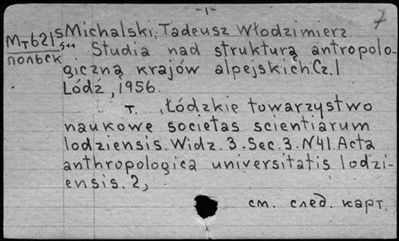 -1-
7
Мт621 5 Michalski, Tadeusz Włodzimierz
польск 544 Studia nad strukturą antropolo-
giczną krajów alpejskich. Cz. 1
Łódź, 1956.
т. , Łódzkie towarzystwo
naukowe societas scientiarum
lodziensis. Widz. 3. Sec. 3. N41. Acta
anthropologica universitatis lodzi-
ensis. 2,
см. след. карт.